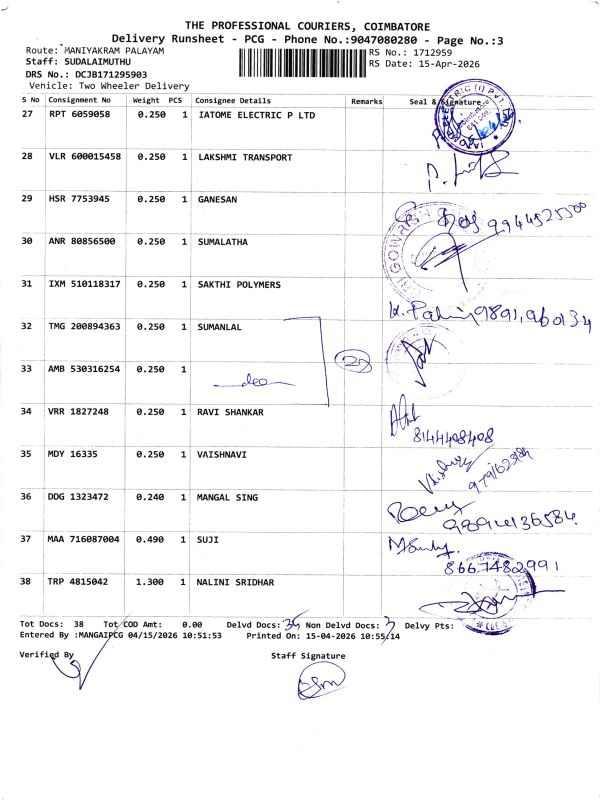 THE PROFESSIONAL COURIERS, COIMBATORE
Delivery Runsheet - PCG - Phone No.:9047080280 - Page No.:3
Route: MANIYAKRAM PALAYAM
RS No.: 1712959
Staff: SUDALAIMUTHU
RS Date: 15-Apr-2026
DRS No.: DCJB171295903
Vehicle: Two Wheeler Delivery
S No Consignment No Weight PCS Consignee Details Remarks Seal & Signature
27 RPT 6059058 0.250 1 IATOME ELECTRIC P LTD
28 VLR 600015458 0.250 1 LAKSHMI TRANSPORT
29 HSR 7753945 0.250 1 GANESAN
30 ANR 80856500 0.250 1 SUMALATHA
31 IXM 510118317 0.250 1 SAKTHI POLYMERS
32 TMG 200894363 0.250 1 SUMANLAL
33 AMB 530316254 0.250 1
34 VRR 1827248 0.250 1 RAVI SHANKAR
8144408408
35 MDY 16335 0.250 1 VAISHNAVI
36 DDG 1323472 0.240 1 MANGAL SING
37 MAA 716087004 0.490 1 SUJI
8667482991
38 TRP 4815042 1.300 1 NALINI SRIDHAR
Tot Docs: 38 Tot COD Amt: 0.00 Delvd Docs: 35 Non Delvd Docs: 3 Delvy Pts:
Entered By :MANGAIPCG 04/15/2026 10:51:53 Printed On: 15-04-2026 10:55:14
Verified By Staff Signature